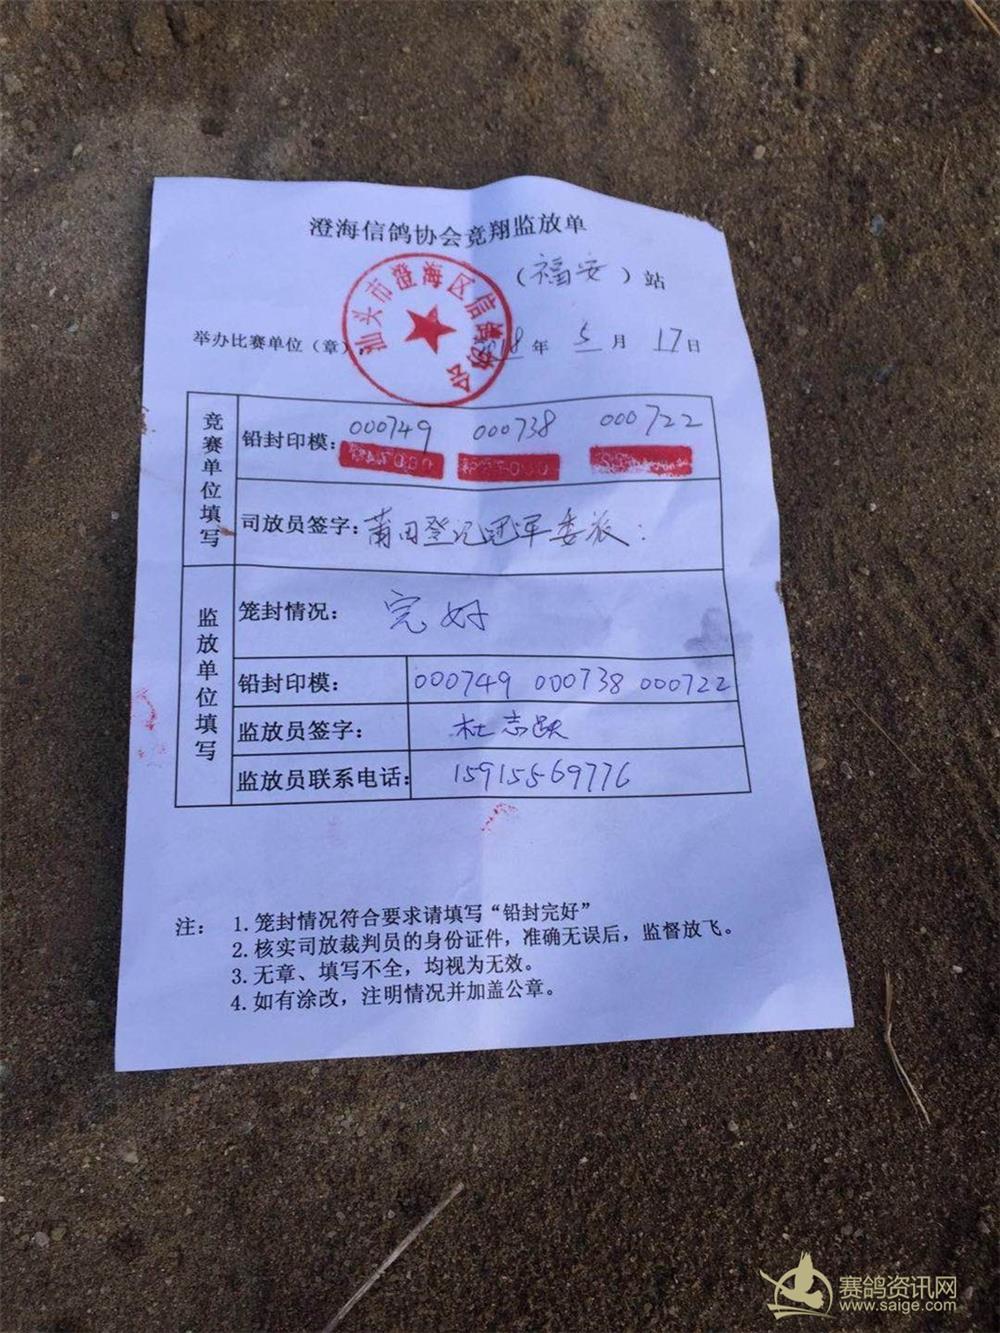 澄海信鸽协会竞翔监放单
（福安）站
汕头市澄海区信鸽协会
举办比赛单位（章）： 2018年 5月 17日
竞赛单位填写
铅封印模： 000749 000738 000722
司放员签字：莆田登记冠军委派：
监放单位填写
笼封情况： 完好
铅封印模： 000749 000738 000722
监放员签字： 杜志跃
监放员联系电话： 15915569776
注： 1.笼封情况符合要求请填写“铅封完好”
2.核实司放裁判员的身份证件，准确无误后，监督放飞。
3.无章、填写不全，均视为无效。
4.如有涂改，注明情况并加盖公章。
赛鸽资讯网
www.saige.com